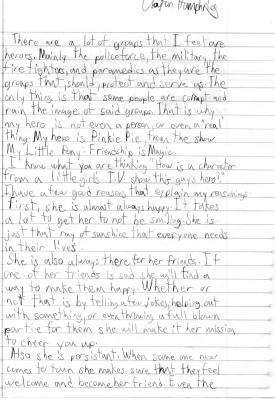 Clayton Humphrey
There are a lot of groups that I feel are
heroes. Mainly the police force, the military, the
fire fighters, and paramedics as they are the
groups that should protect and serve us. The
only thing is that some people are corrupt and
ruin the image of said groups. That is why
my hero is not even a person, or even a real
thing. My hero is Pinkie Pie, from the show
My Little Pony: Friendship is Magic.
I know what you are thinking "How is a character
from a little girls T.V. show this guys hero?"
I have a few good reasons that explain my reasoning.
First, she is almost always happy. It takes
a lot to get her to not be smiling. She is
just that ray of sunshine that everyone needs
in their lives.
She is also always there for her friends. If
one of her friends is sad she will find a
way to make them happy. Whether or
not that is by telling a few jokes, helping out
with something, or even throwing a full blown
partie for them she will make it her mission
to cheer you up.
Also she is persistant. When some one new
comes to town she makes sure that they feel
welcome and become her friend. Even the